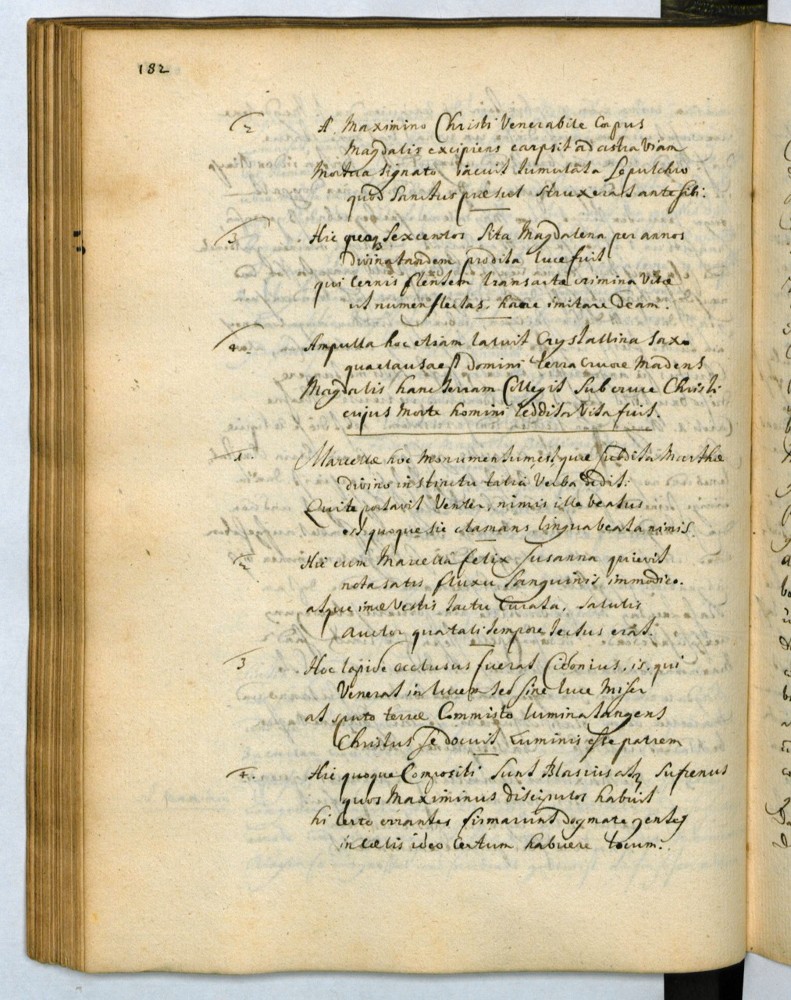 182
2 A Maximino Christi Venerabile Corpus
Magdalis excipiens carpsit ad astra Viam
Mortua signato iacuit tumulata Sepulchro
quod Sanctus præsul struxerat ante sibi.
3 Hic quoq Sexcentos Sita Magdalena per annos
divina tandem prodita luce fuit
qui Cernis flentem transactæ crimina Vitæ
ut numen flectas, hanc imitare deam.
4. Ampulla hoc etiam latuit Crystallina Saxo
qua clausa est domini terra cruore Madens
Magdalis hanc terram Collegit Sub cruce Christi
cujus Morte homini reddita Vita fuit.
1. Marcellæ hoc Monumentum est, quæ subdita Marthæ
divino instinctu talia Verba dedit:
Qui te portavit Venter, nimis ille beatus
est quoque sic clamans lingua beata nimis.
2. Hic cum Marcella felix Susanna quievit
nota satis fluxu Sanguinis immodico.
atque imæ Vestis tactu Curata, salutis
Auctor qua tali tempore tectus erat.
3 Hoc lapide occlusus fuerat Cidonius, is, qui
Venerat in lucem sed sine luce Miser
at sputo terræ Commisto lumina tangens
Christus se docuit Luminis esse patrem
4. Hic quoque Compositi Sunt Blasius atq Sufrenus
quos Maximinus discipulos habuit
hi Certo errantes firmarunt dogmate gentes
in Cælis ideo Certum habuere locum.